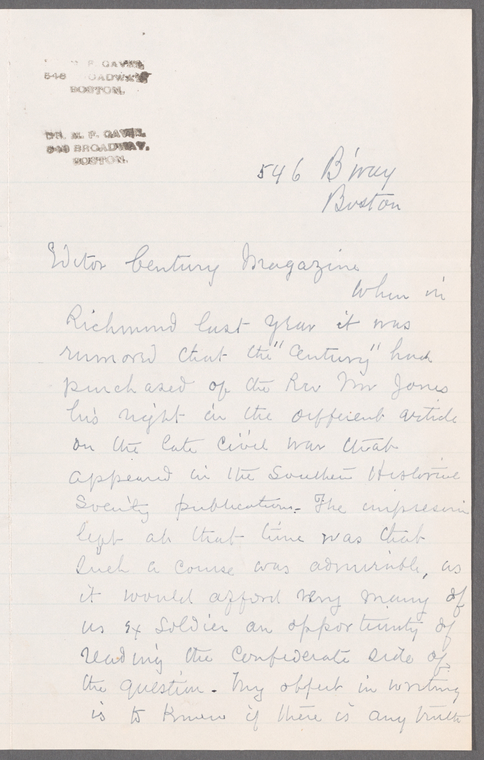 M. F. GAVIN,
546 BROADWAY
BOSTON.
DR. M. F. GAVIN,
546 BROADWAY,
BOSTON.
546 B'way
Boston
Editor Century Magazine
When in
Richmond last year it was
rumored that the "Century" had
purchased of the Rev Mr Jones
his right in the different article
on the late Civil war that
appeared in the Southern Historical
Society publication. The impression
left at that time was that
such a course was admirable, as
it would afford very many of
us Ex Soldier an opportunity of
reading the Confederate side of
the question. My object in writing
is to know if there is any truth